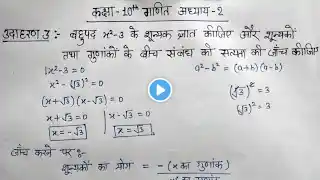 कक्षा-10th गणित अध्याय-2
उदाहरण 3 :- बहुपद x²-3 के शून्यक ज्ञात कीजिए और शून्यकों
तथा गुणांकों के बीच संबंध की सत्यता की जाँच कीजिए
x²-3 = 0
a²-b² = (a+b)(a-b)
x²-(√3)² = 0
(x+√3)(x-√3) = 0
(√3)² = 3
(√3)² = 3
x+√3 = 0
x-√3 = 0
x = -√3
x = √3
जाँच करने पर :-
शून्यकों का योग = -(x का गुणांक)